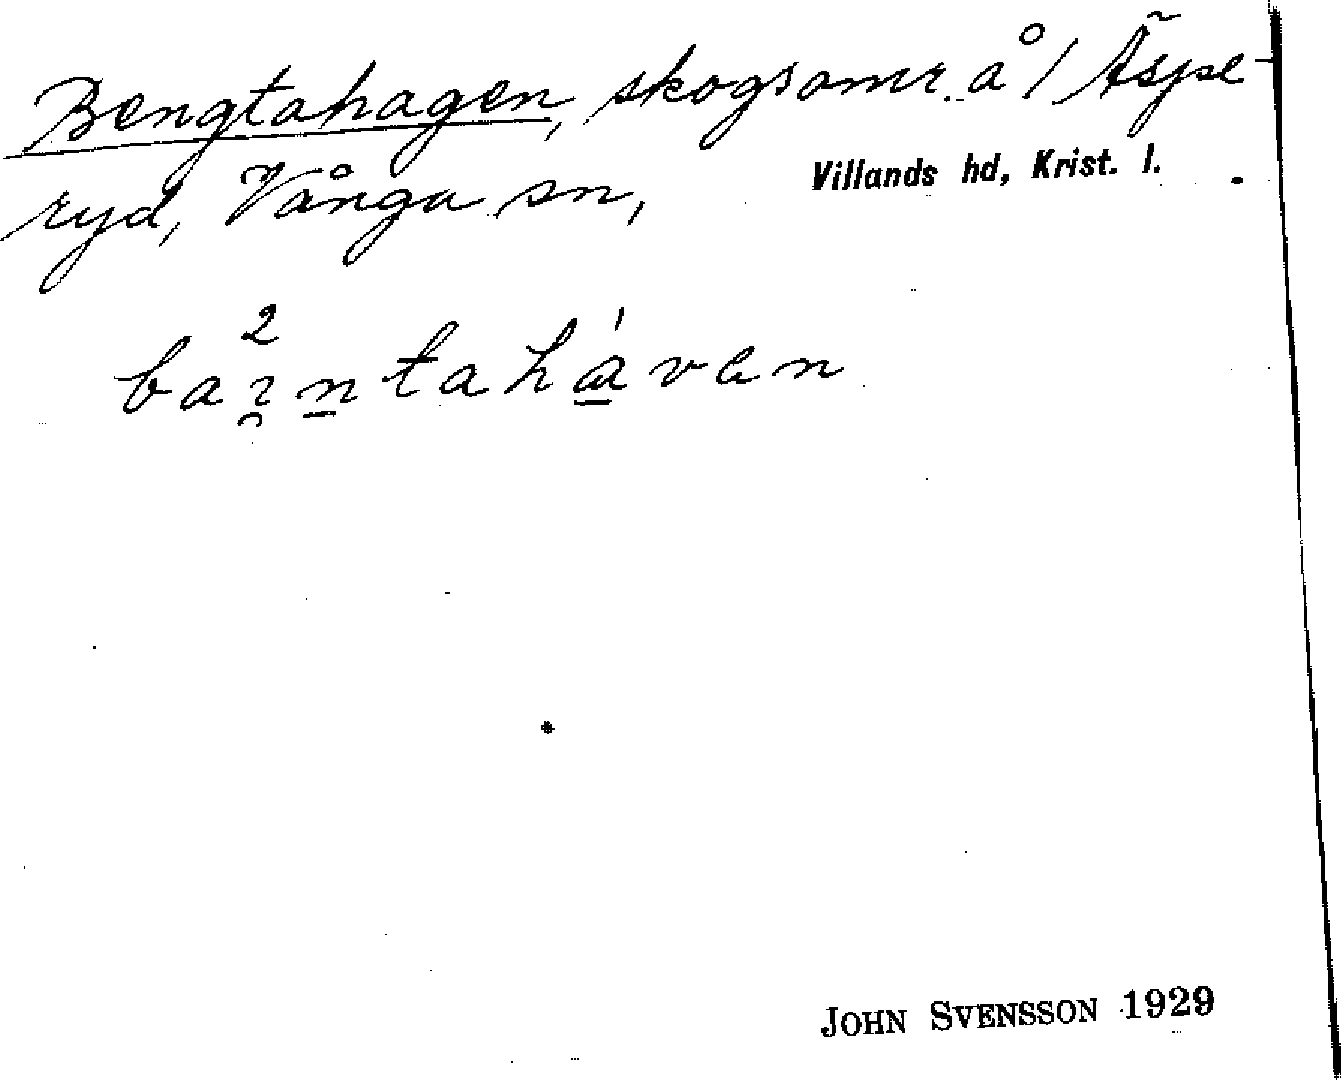 Bengtahagen, skogsområ. å / Äspe-
ryd, Vånga sn, Villands hd, Krist. l.
JOHN SVENSSON 1929